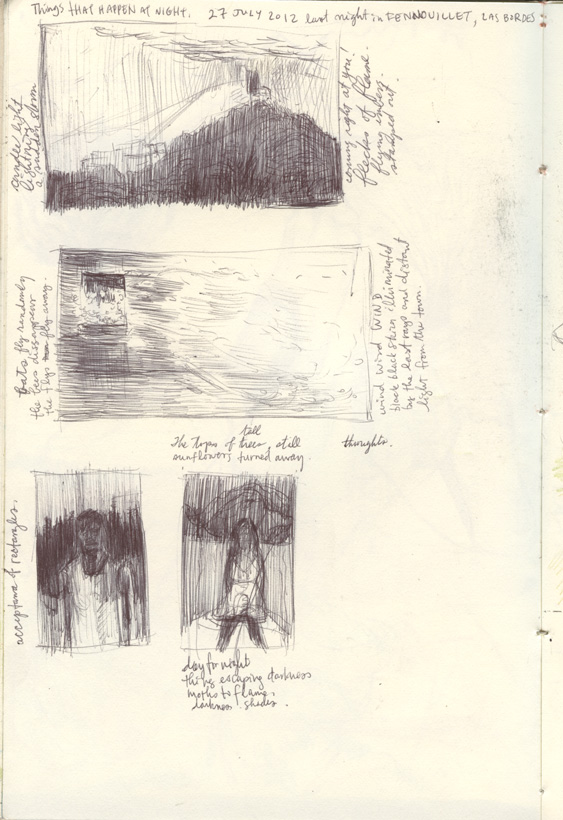 Things THAT HAPPEN AT NIGHT. 27 JULY 2012 last night in FENNOUILLET, LAS BORDES
candle light
lightning
a summer storm
coming right at you!
flecks of flame.
flying embers
stamped out.
bats fly randomly
the trees disappear
the flys fly away.
wind wind WIND
black black skies illuminated
by the last rays and distant
light from the town.
tall
The Tops of trees, still
sunflowers turned away.
thoughts.
acceptance of rectangles.
day for night
things escaping darkness
moths to flames
darkness. shades.